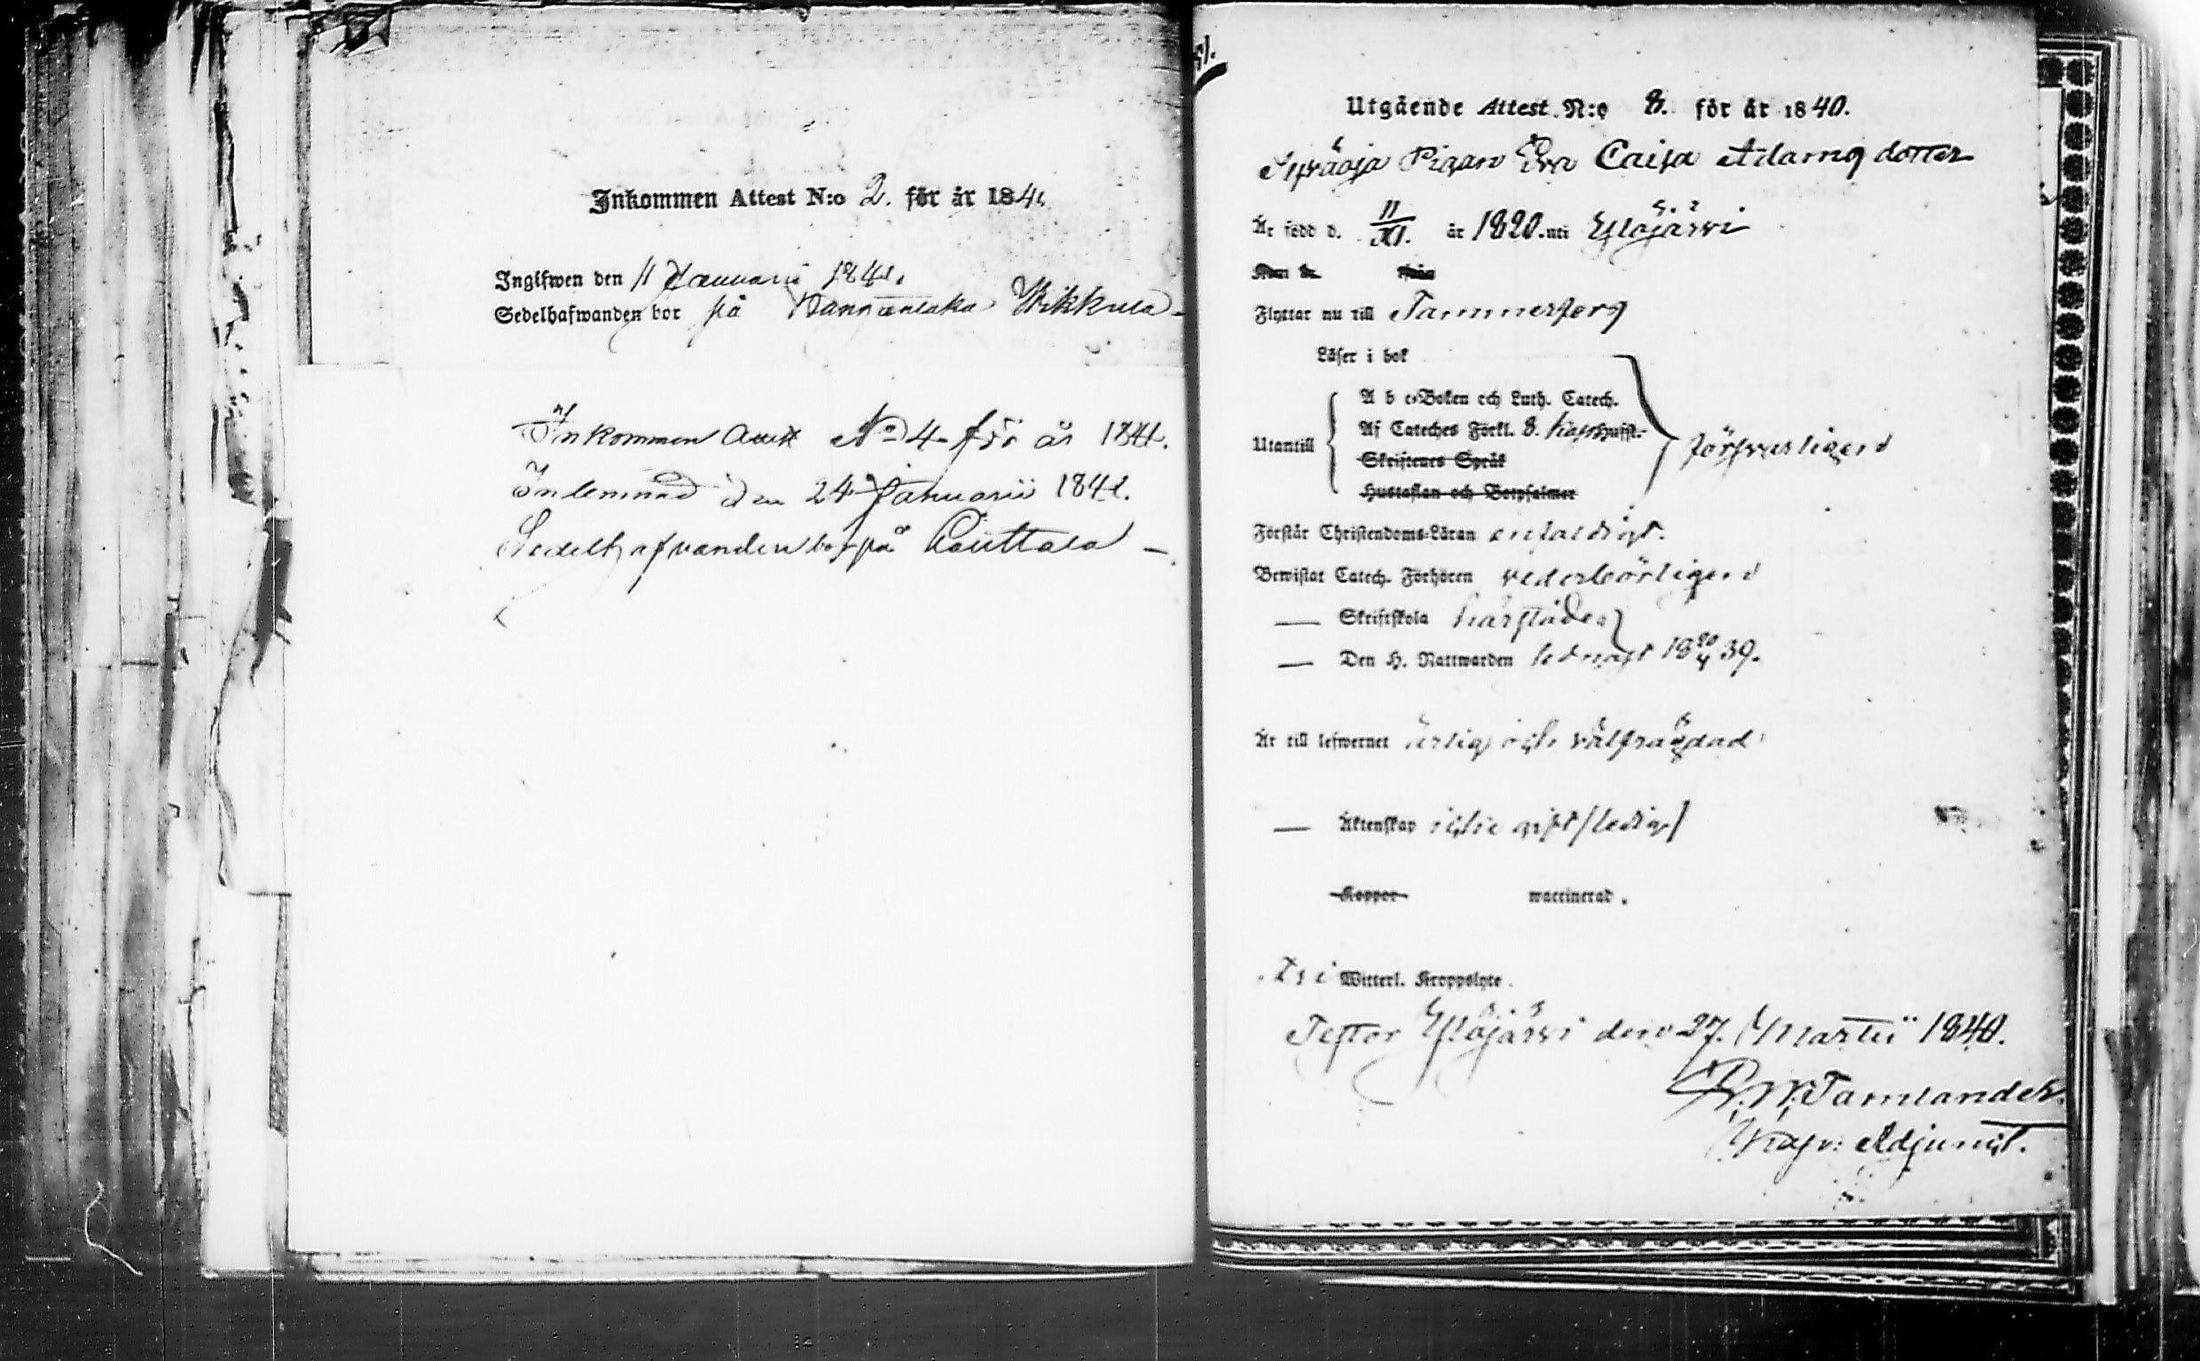 Inkommen Attest N:o 2. för år 1841.
Inglfwen den 11 Januarii 1841.
Sedelhafwanden bor på Wikkula
Inkommen Attest No 4 för år 1841.
Inlemnad den 24 Januarii 1841.
Sedelhafvanden bor på Pouttala
51.
Utgående Attest N:o 8. för år 1840.
Pigan Eva Caisa Adams dotter
Är född d. 11/XI. år 1820. uti Ylöjärvi
Flyttar nu till Tammerfors
Läser i bok
A b c-Boken och Luth. Catech.
Af Cateches Förkl. 8. Kap: försvarligen
Utantill
Skriftenes Språk
Hustaflan och Botpsalmer
Förstår Christendoms-Läran enfaldigt.
Bewistat Catech. Förhören vederbörligen
— Skriftskola härstädes
— Den H. Nattwarden sednast 18 20/4 39.
Är till lefwernet ärlig och välfrägdad
— Äktenskap icke gift (ledig)
Koppor waccinerad.
Witterl. Kroppslyte.
Testor Ylöjärvi den 27. Martii 1840.
Tamlander.
Adjunct.